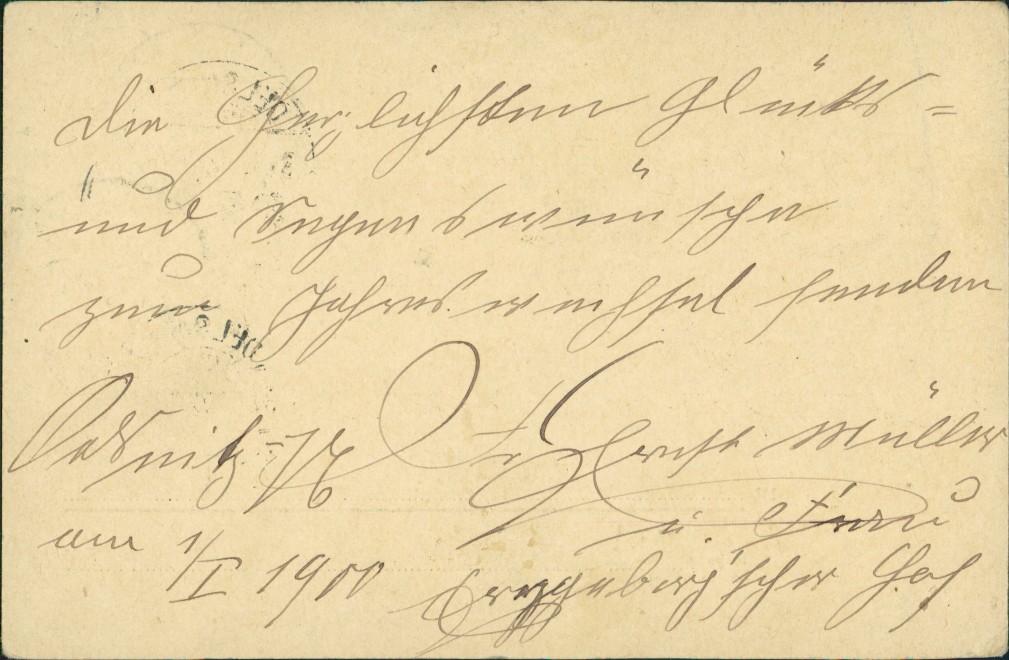 Die herzlichsten Glücks=
und Segenswünsche
zum Jahreswechsel senden
Oelsnitz i/E Ernst Müller
u. Frau
am 1/I 1900 Erzgebirg'scher Hof